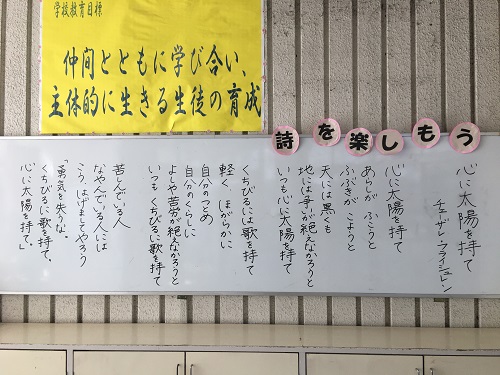 学校教育目標
仲間とともに学び合い、
主体的に生きる生徒の育成
詩を楽しもう
心に太陽を持て
チェーザレ・フライシュレン
心に太陽を持て
あらしが ふこうと
ふぶきが こようと
天には黒くも
地には争いが絶えなかろうと
いつも心に太陽を持て
くちびるには歌を持て
軽く、ほがらかに
自分のつとめ
自分のくらしに
よしや苦労が絶えなかろうと
いつもくちびるに歌を持て
苦しんでいる人
なやんでいる人には
こう、はげましてやろう
「勇気を失うな。
くちびるに歌を持て、
心に太陽を持て。」